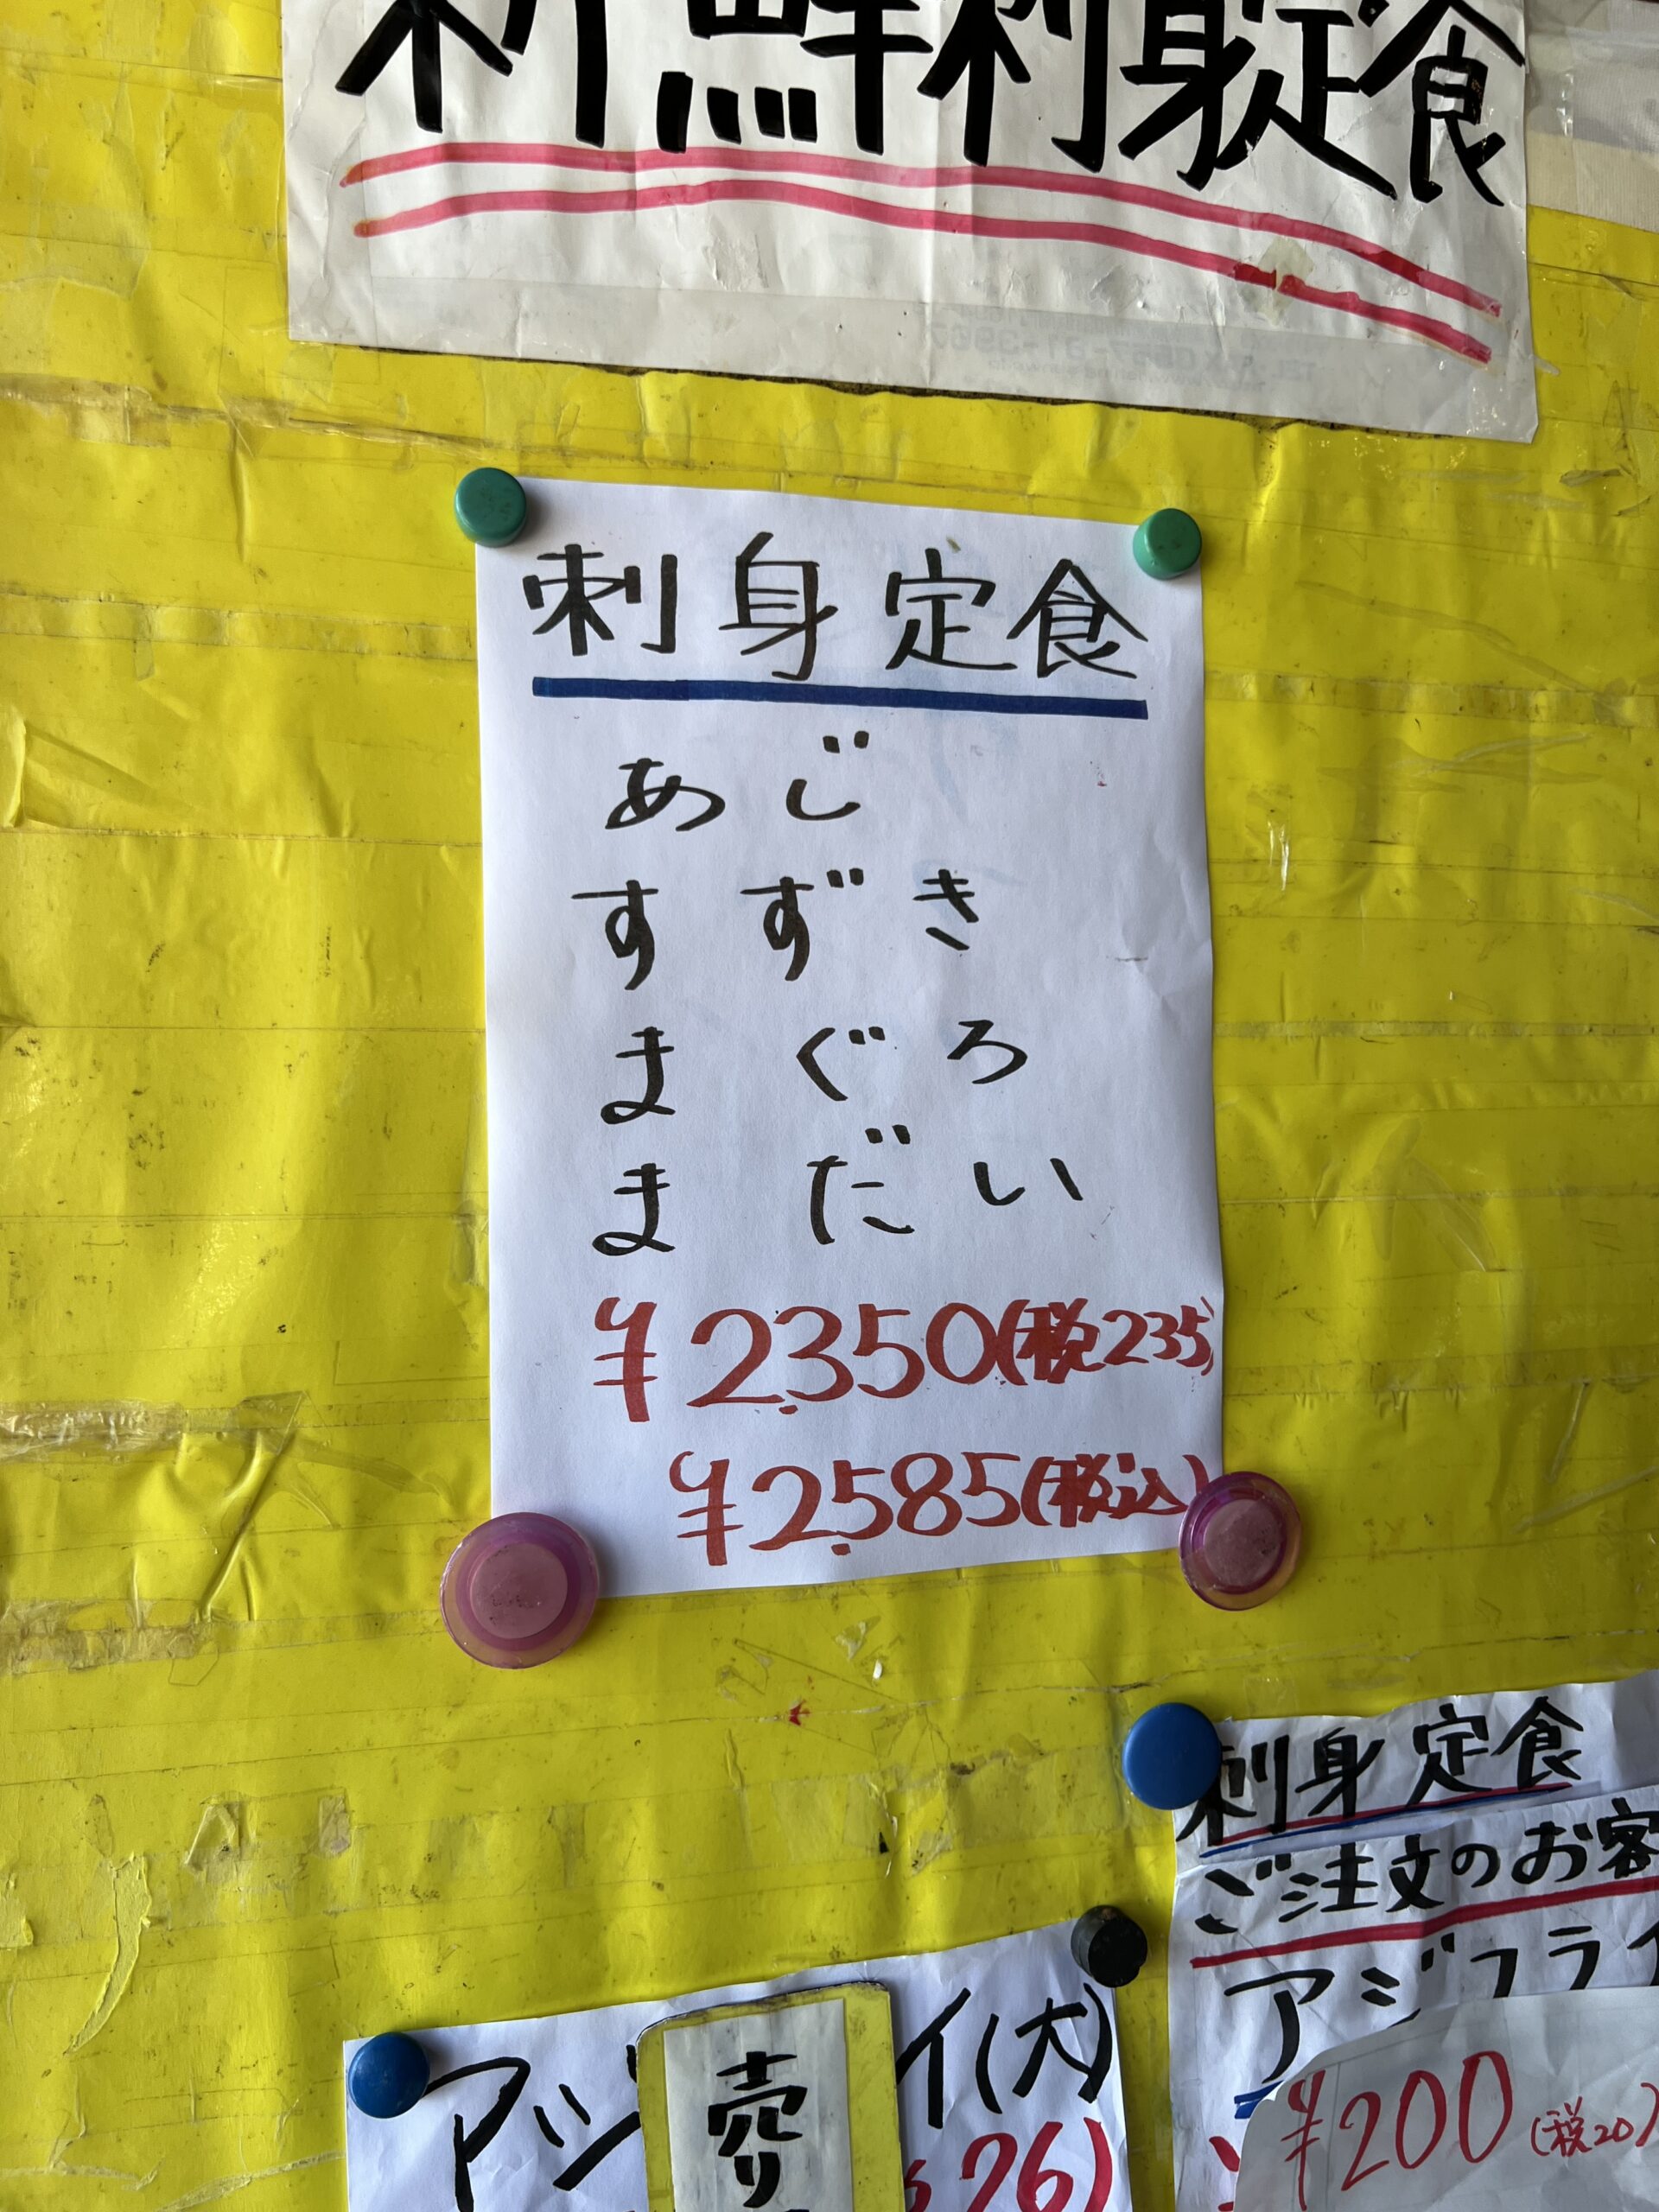 新鮮刺身定食
刺身定食
あじ
すずき
まぐろ
まだい
¥2,350(税235)
¥2,585(税込)
刺身定食
ご注文のお客
アジフライ
¥200(税20)
アジ
イ(大)
売り
76)